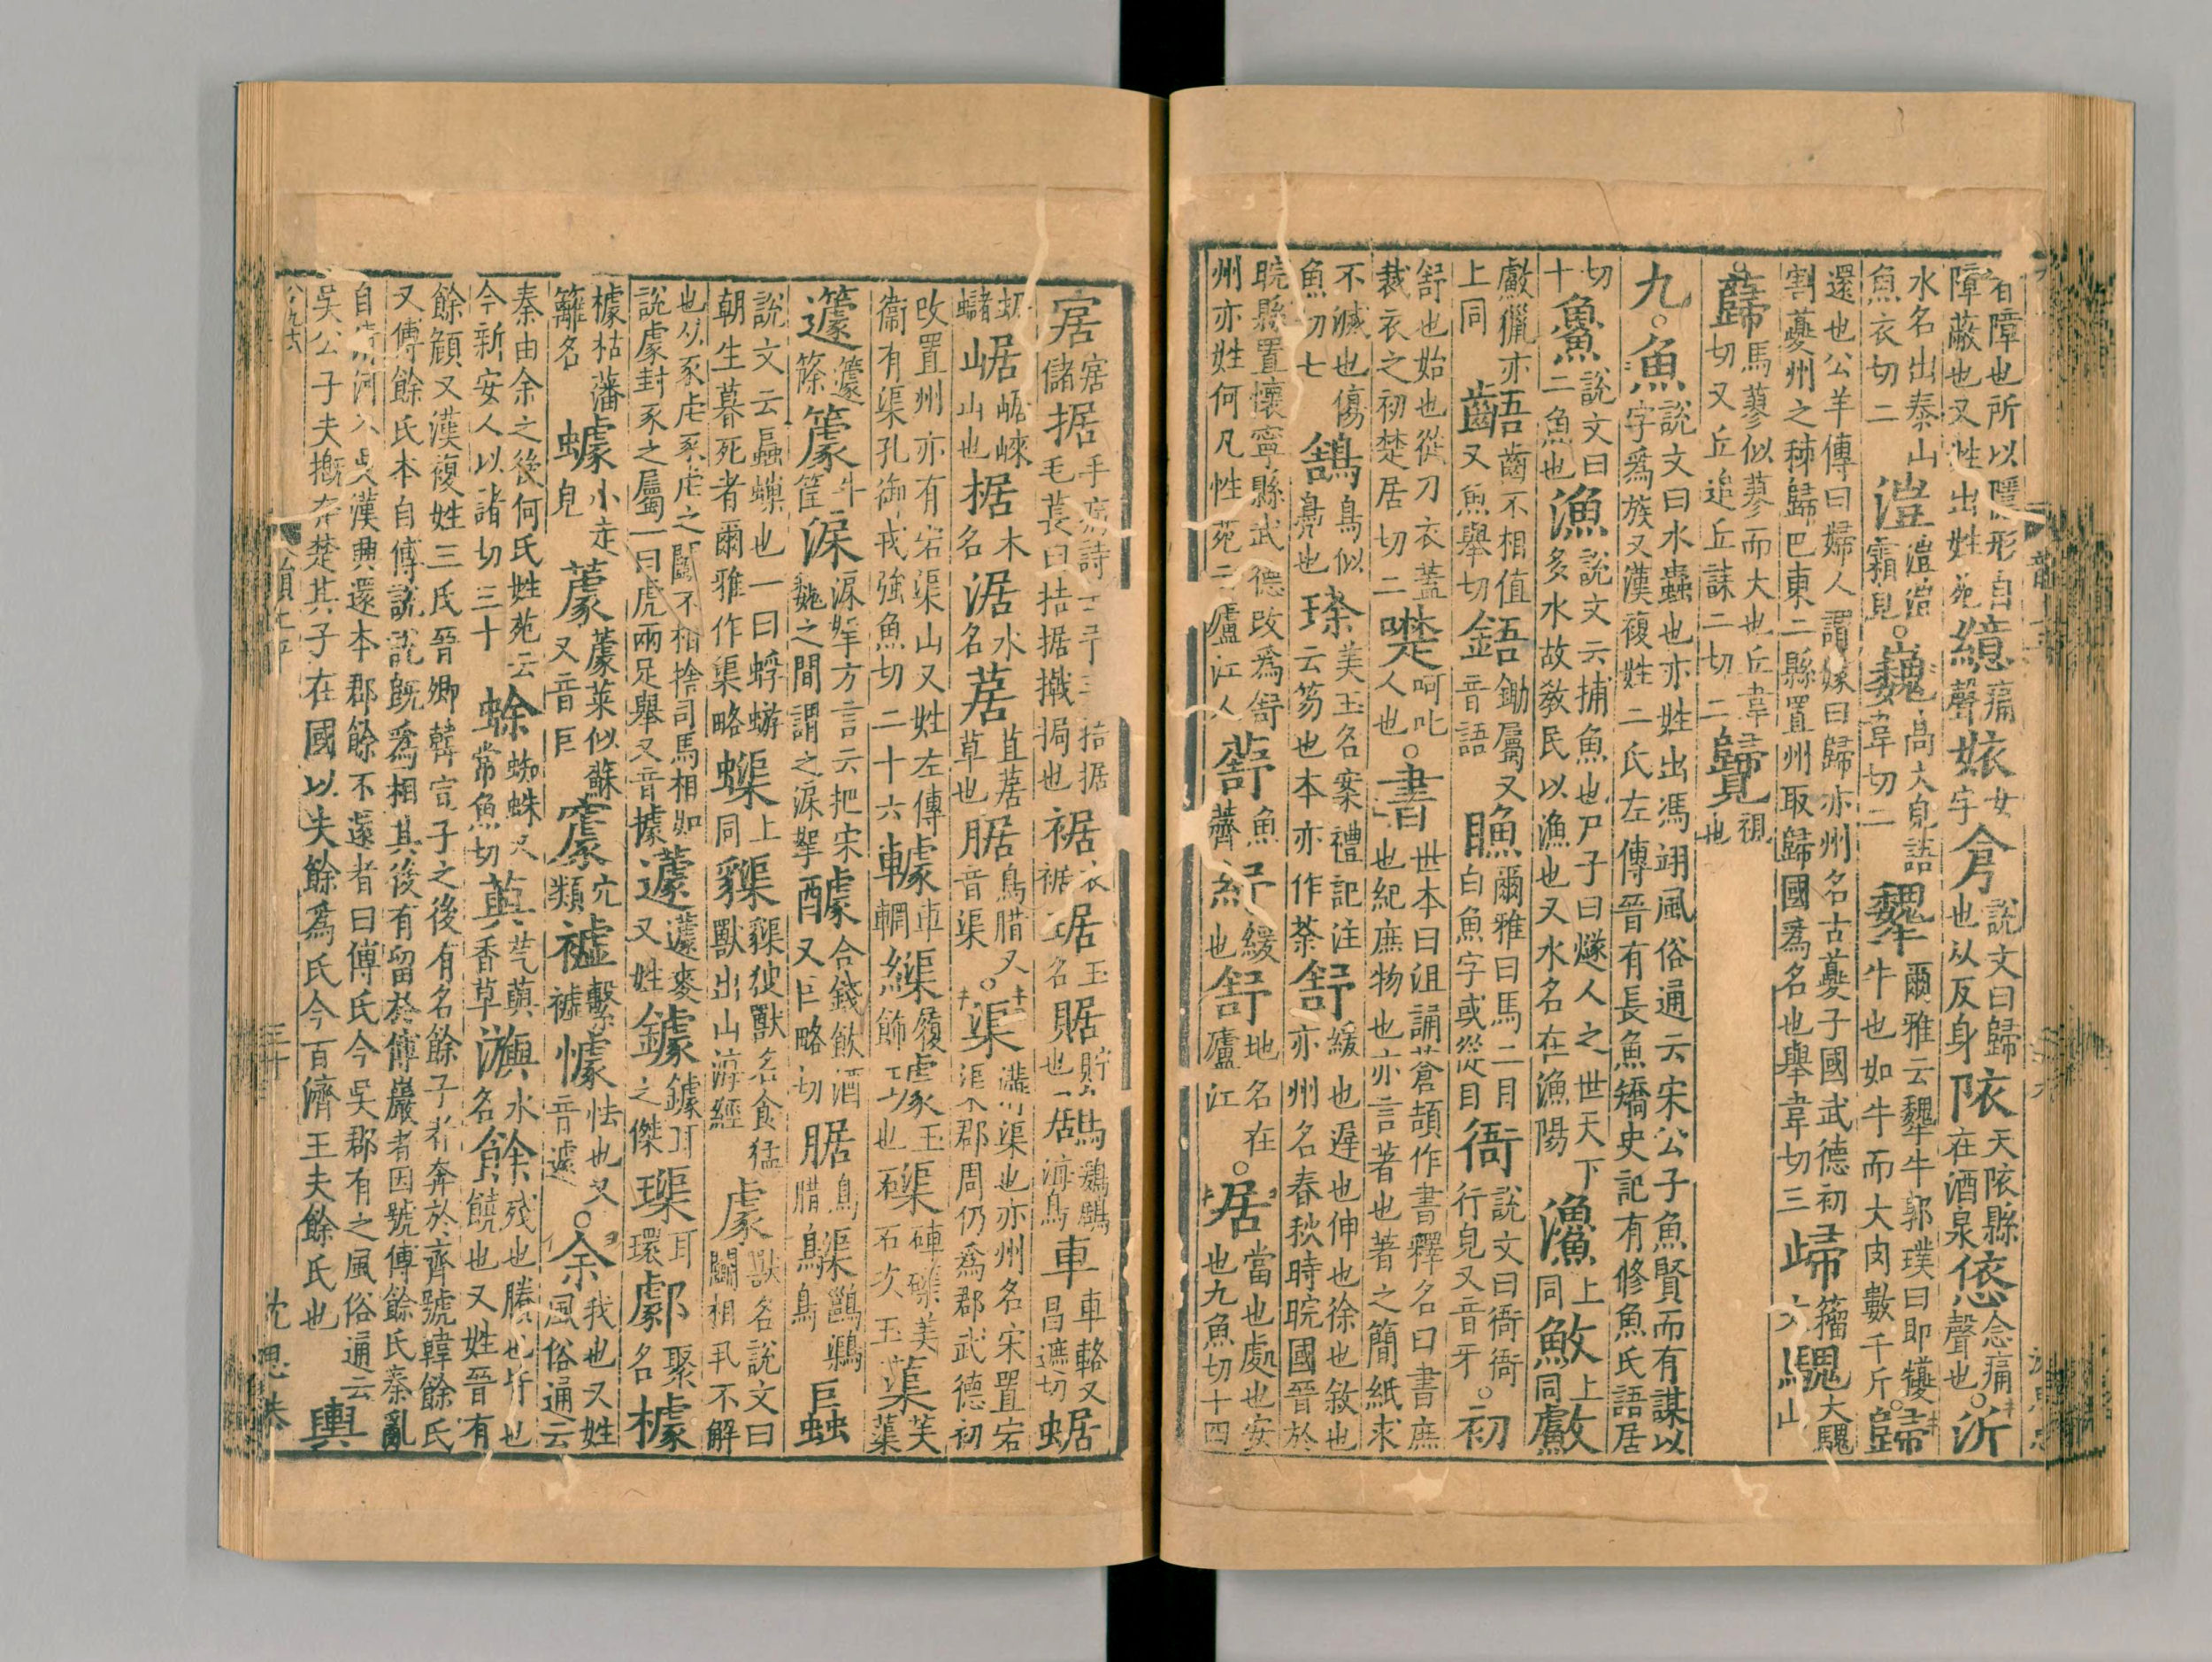 有障也所以隱形自障蔽也又姓出姓苑繶痛聲㛄女字㐆說文曰歸也从反身𨹶天𨹶縣在酒泉㥋念痛聲也○沂
水名出泰山魚衣切二溰溰溰霜皃○巍高大皃語韋切二犩爾雅云犩牛郭璞曰即犪牛也如牛而大肉數千斤○歸
還也公羊傳曰婦人謂嫁曰歸亦州名古夔子國武德初割夔州之秭歸巴東二縣置州取歸國爲名也舉韋切三㱕籀文騩大騩山
○蘬馬蓼似蓼而大也丘韋切又丘追丘誄二切二視也
九○魚說文曰水蟲也亦姓出馮翊風俗通云宋公子魚賢而有謀以字爲族又漢複姓二氏左傳晉有長魚矯史記有修魚氏語居
切十䲆說文曰二魚也漁說文云捕魚也尸子曰燧人之世天下多水故敎民以漁也又水名在漁陽𤅵上同䱷上同𣀮
𣀮獵亦上同齬齬齒不相值又魚舉切鋙鋤屬又音語䁩爾雅曰馬二目白魚字或從目衙說文曰衙衙行皃又音牙○初
舒也始也從刀衣蓋裁衣之初楚居切二呵叱人也○書世本曰沮誦蒼頡作書釋名曰書庶也紀庶物也亦言著也著之簡紙求
不滅也傷魚切七鵨鳥似鳧也瑹美玉名案禮記注云笏也本亦作荼舒緩也遲也伸也徐也敘也亦州名春秋時晥國晉於
晥縣置懷寧縣武德改爲舒州亦姓何凡性苑云廬江人蕣魚薺紓緩也䣄地名在廬江○居當也處也安也九魚切十四
㝒㝒儲据手病詩云予手拮据毛萇曰拮据撠挶也裾衣裾琚玉名䝻貯也鶋鶢鶋海鳥車車輅又昌遮切蜛
蜛蠩崌崌崍山也椐木名涺水名䓟苴䓟草也腒鳥腊又音渠○渠溝渠也亦州名宋置宕渠郡周仍爲郡武德初
改置州亦有宕渠山又姓左傳衞有渠孔御戎強魚切二十六䡾車輞䋧履飾璩玉名也磲硨磲美石次玉蕖芙蕖
籧籧篨䈮牛筐淭淭挐方言云把宋魏之間謂之淭挐醵合錢飲酒又巨略切腒鳥腊䲣䲣鸂鳥𧕎
說文云𧕎螶也一曰蜉蝣朝生暮死者爾雅作渠略蟝上同貗獸名食猛獸出山海經豦獸名說文曰鬬相丮不解
也从豕虍豕虍之鬬不相捨司馬相如說豦封豕之屬一曰虎兩足舉又音據蘧蘧麥又姓鐻鐻耳之傑璖耳環䣰聚名㯫
㯫枯藩籬名蟝小走皃䕮䕮菜似蘇又音巨㝩穴類䙔繫䙔懅怯也又音遽○余我也又姓風俗通云
秦由余之後何氏姓苑云今新安人以諸切三十蜍蜘蛛又常魚切藇芞藇香草㶛水名餘殘也賸也皆也饒也又姓晉有
餘頠又漢複姓三氏晉卿韓宣子之後有名餘子者奔於齊號韓餘氏又傅餘氏本自傅說說既爲相其後有留於傅巖者因號傅餘氏秦亂
自清河入吳漢興還本郡餘不還者曰傅氏今吳郡有之風俗通云吳公子夫摡奔楚其子在國以夫餘爲氏今百濟王夫餘氏也輿